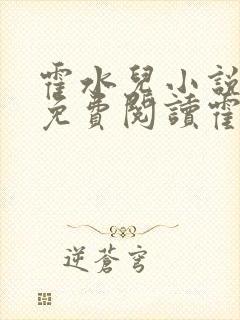 霍水兒小說
免費閱讀霍
逆蒼穹